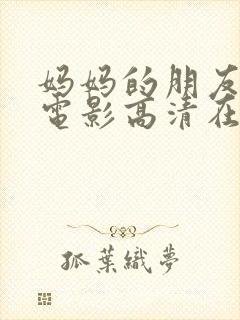 妈妈的朋友
電影高清在
孤葉織夢